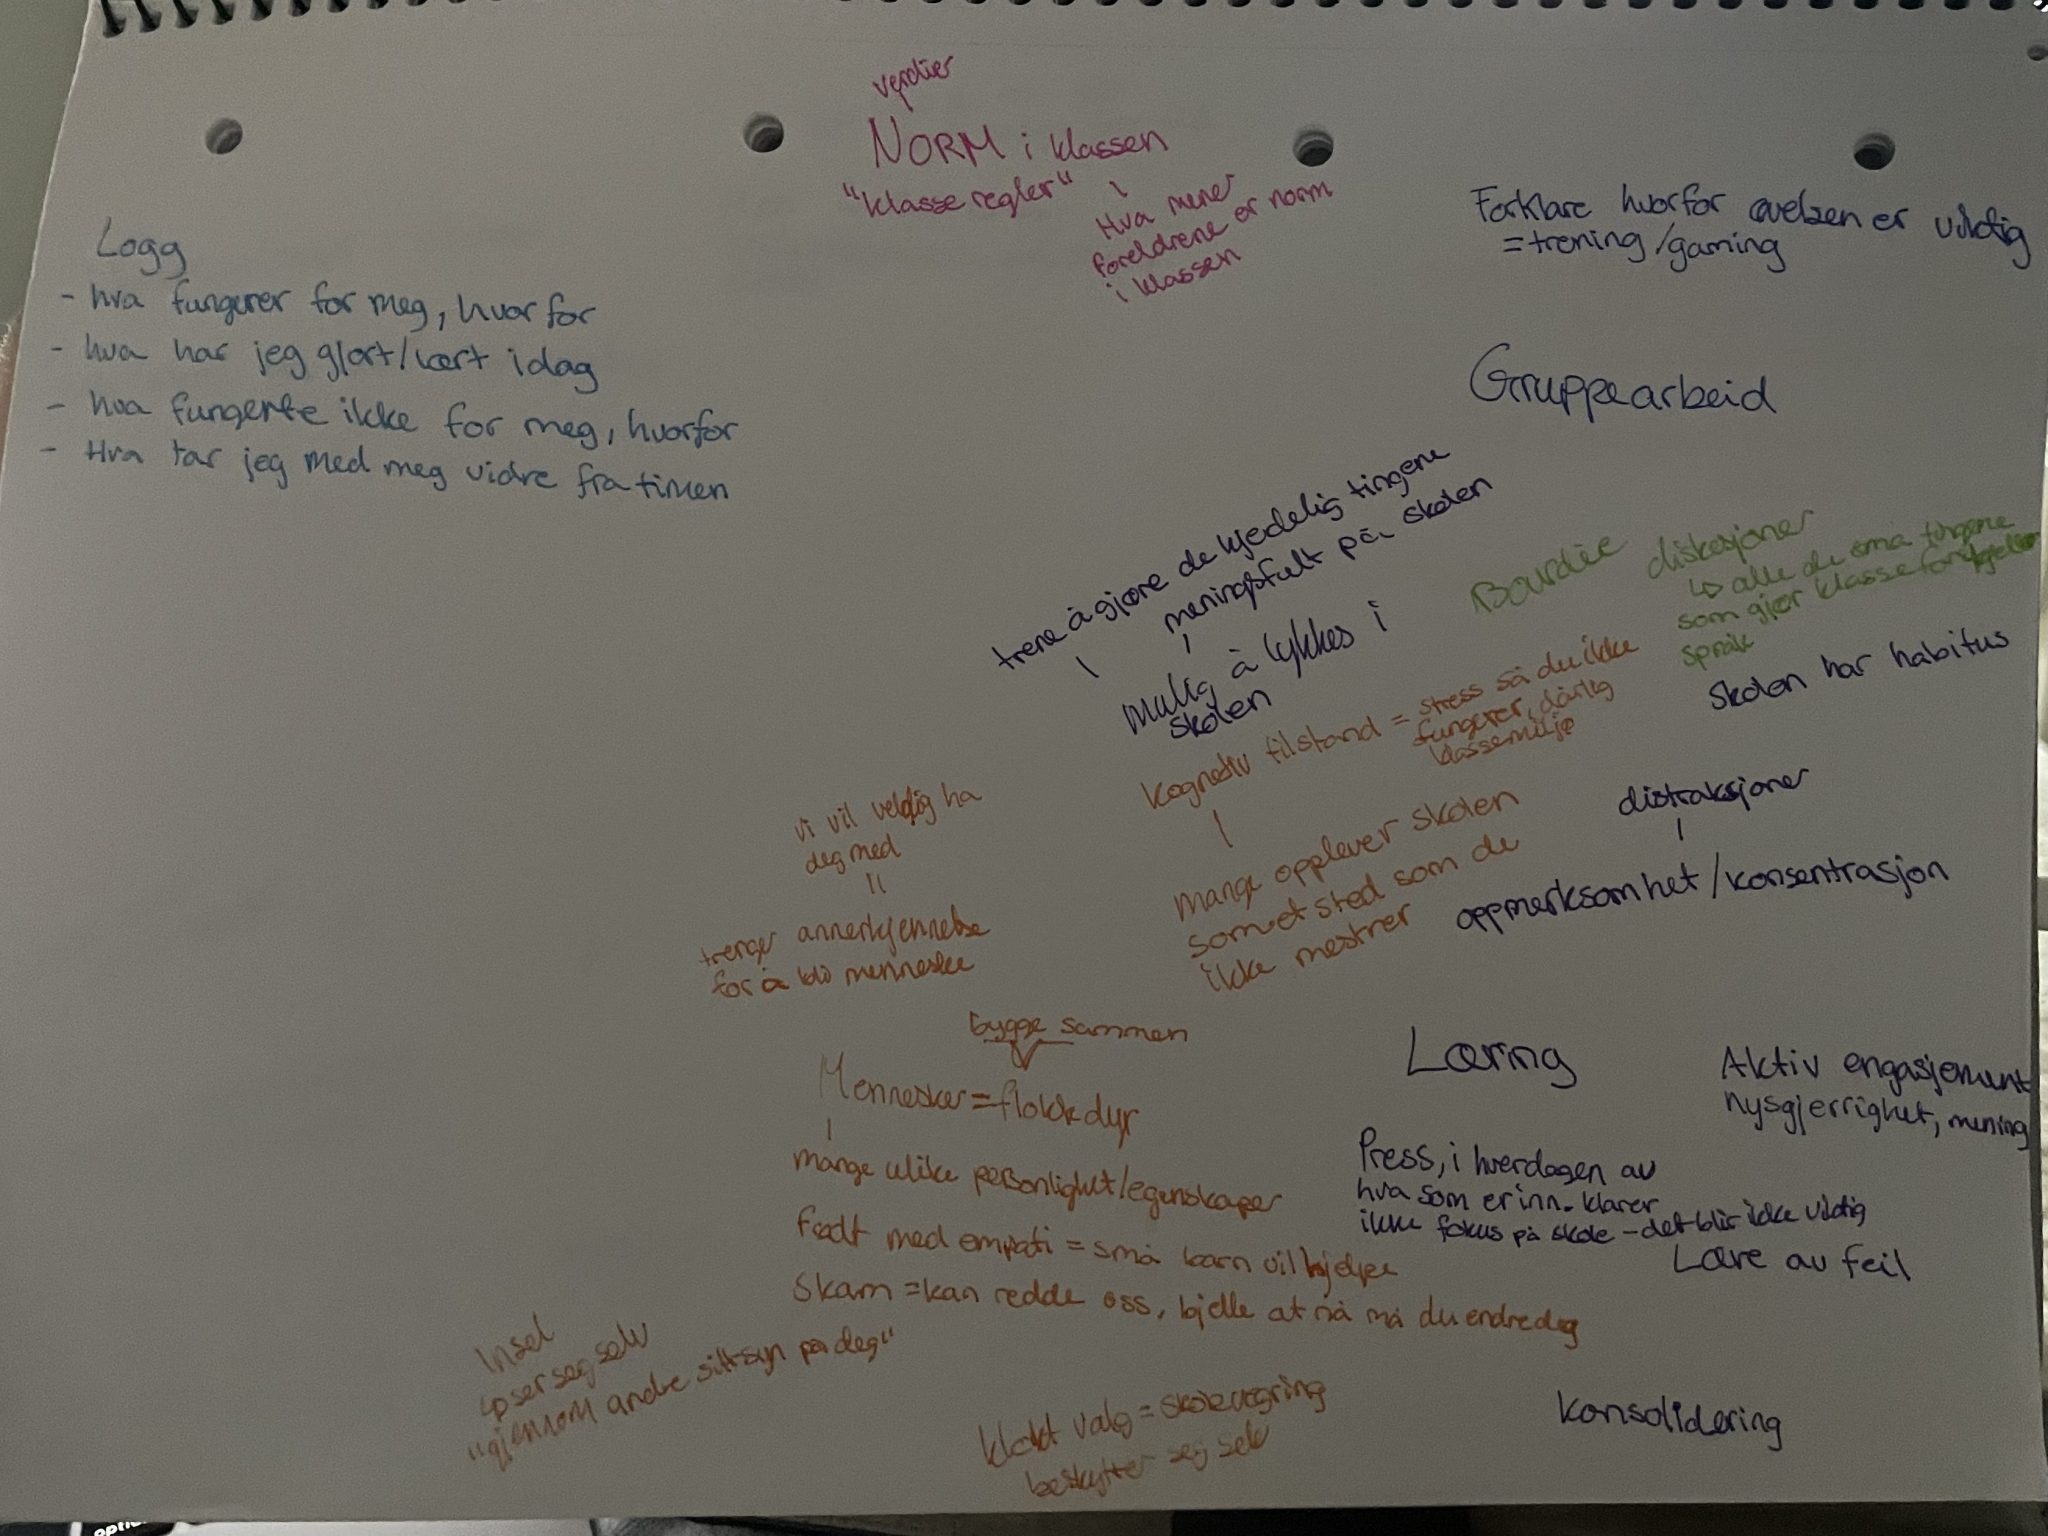 verdier
NORM i klassen
"klasse regler"
Hva mener
foreldrene er norm
i klassen
Forklare hvorfor øvelsen er viktig
= trening/gaming
Logg
- hva fungerer for meg, hvorfor
- hva har jeg gjort/lært idag
- hva fungerte ikke for meg, hvorfor
- Hva tar jeg med meg vidre fra timen
Gruppearbeid
trene å gjøre de kjedelig tingene
meningsfult på skolen
mulig å lykkes i
skolen
Bourdie
diskesjoner
↳ alle de små tingene
som gjør
språk
Skolen har habitus
Kognetiv tilstand = stress så du ikke
fungerer, dårlig
klassemiljø
mange opplever skolen
som et sted som de
ikke mestrer
distraksjoner
oppmerksomhet/konsentrasjon
vi vil veldig ha
deg med
trenger annerkjennelse
for å bli menneske
bygge sammen
Mennesker = flokkdyr
mange ulike personlighet/egenskaper
født med empati = små barn vil hjelpe
Skam = kan redde oss, bjelle at nå må du endre deg
Læring
Aktiv engasjement
nysgjerrighet, mening
Press, i hverdagen av
hva som er inn - klarer
ikke fokus på skole - det blir ikke viktig
Lære av feil
Insel
↳ ser seg selv
"gjennom andre sitt syn på deg"
klokt valg = skolevegring
beskytter seg selv
Konsolidering